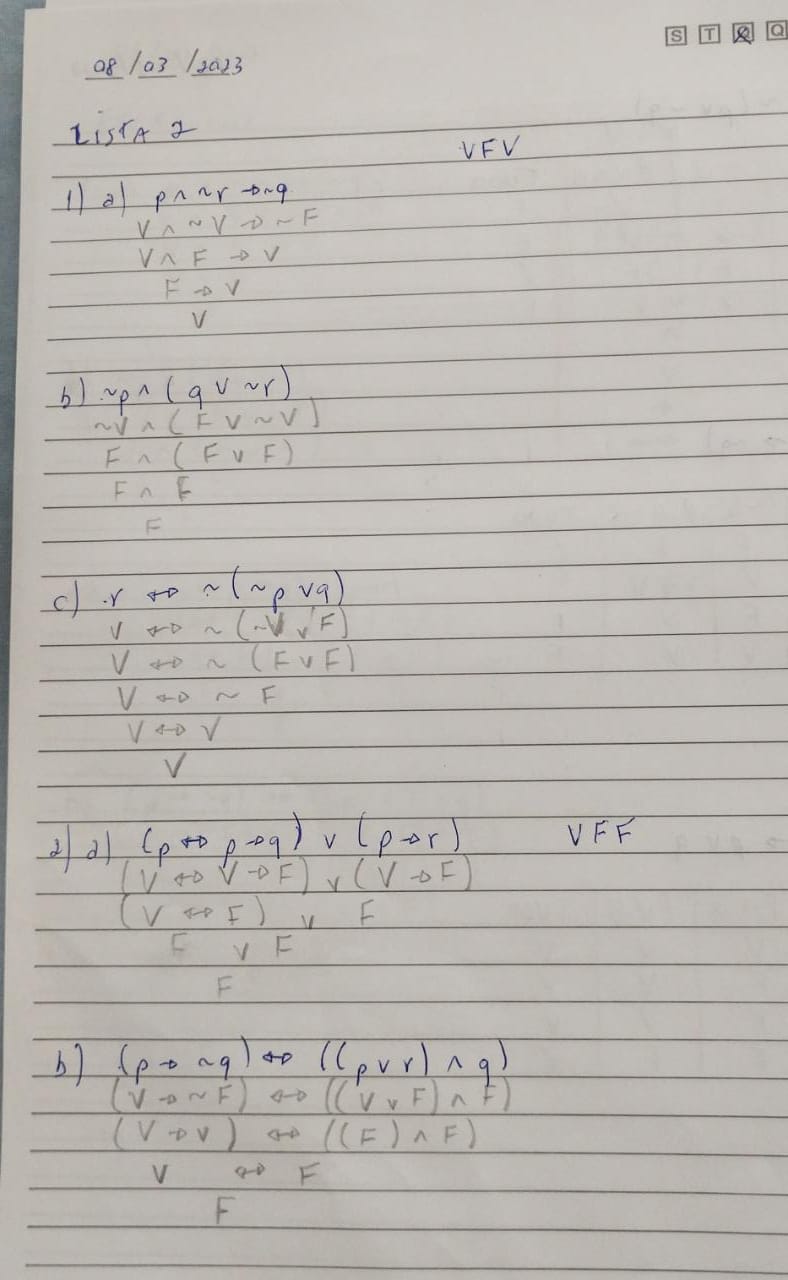 S T Q Q
08/03/2023
LISTA 2
VFV
1) a) p ∧ ~r → ~q
V ∧ ~V → ~F
V ∧ F → V
F → V
V
b) ~p ∧ (q ∨ ~r)
~V ∧ (F ∨ ~V)
F ∧ (F ∨ F)
F ∧ F
F
c) r ↔ ~(~p ∨ q)
V ↔ ~(~V ∨ F)
V ↔ ~(F ∨ F)
V ↔ ~F
V ↔ V
V
2) a) (p ↔ p → q) ∨ (p → r) VFF
(V ↔ V → F) ∨ (V → F)
(V ↔ F) ∨ F
F ∨ F
F
b) (p → ~q) ↔ ((p ∨ r) ∧ q)
(V → ~F) ↔ ((V ∨ F) ∧ F)
(V → V) ↔ ((F) ∧ F)
V ↔ F
F